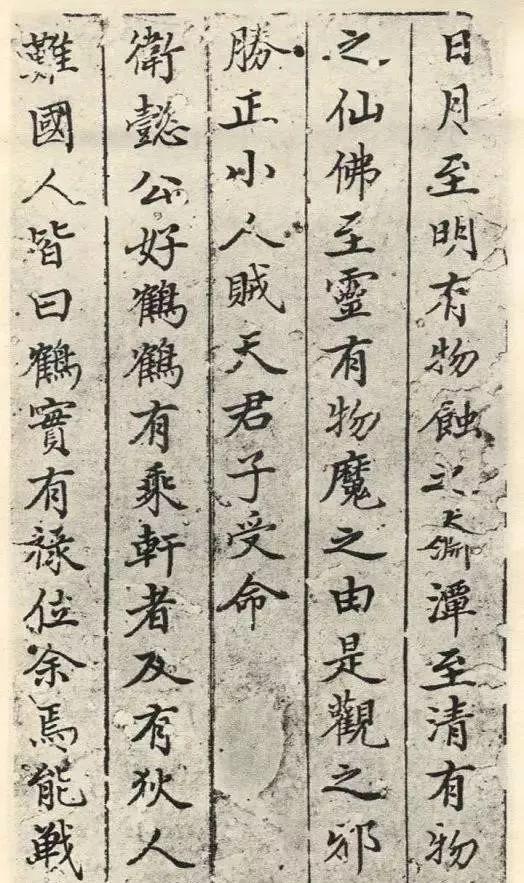 日月至明有物蝕之潭至清有物
之仙佛至靈有物魔之由是觀之邪
勝正小人賊天君子受命
衛懿公好鶴鶴有乘軒者及有狄人
難國人皆曰鶴實有禄位余焉能戦